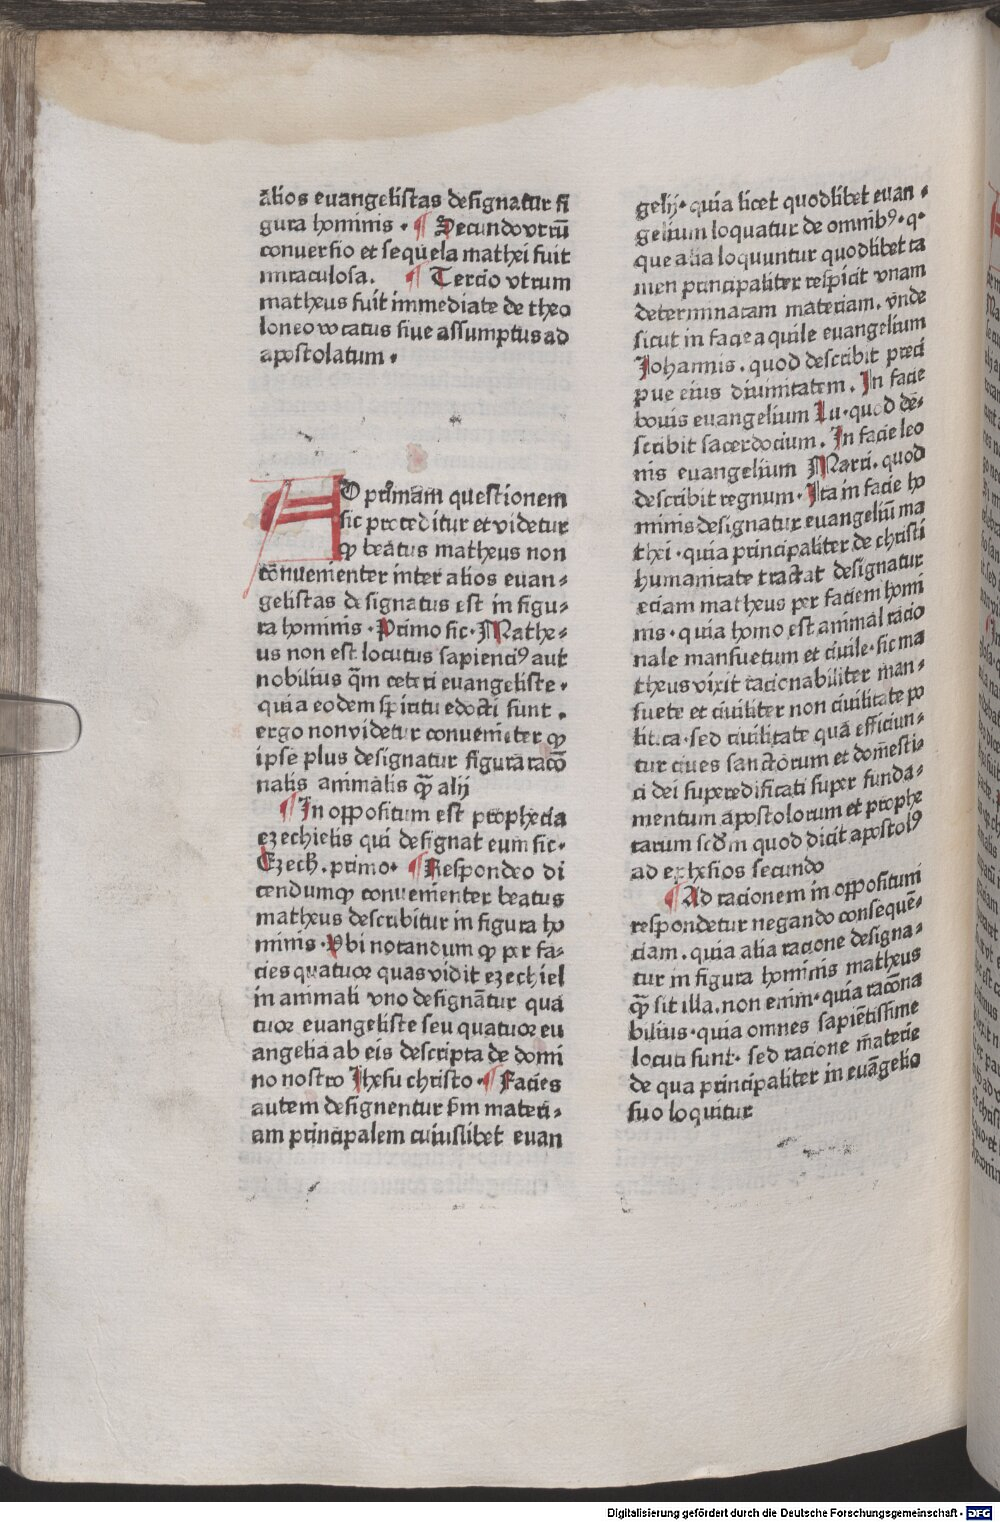 alios euangelistas designatur fi
gura hominis · ¶ Secundo vtrũ
conuersio et sequela mathei fuit
miraculosa. ¶ Tercio vtrum
matheus fuit immediate de theo
loneo vocatus siue assumptus ad
apostolatum ·
AD primam questionem
sic proceditur et videtur
ꝙ beatus matheus non
cõuenienter inter alios euan-
gelistas designatus est in figu-
ra hominis · Primo sic · Mathe-
us non est locutus sapienciꝰ aut
nobilius q̃m ceteri euangeliste ·
quia eodem spiritu edocti sunt .
ergo non videtur conueniẽter ꝙ
ipse plus designatur figura racõ
nalis animalis q̃ alij
¶ In oppositum est prophecia
ezechielis qui designat eum sic ·
Ezech̃ . primo · ¶ Respondeo di
cendum ꝙ conuenienter beatus
matheus describitur in figura ho
minis · Vbi notandum ꝙ per fa-
cies quatuor quas vidit ezechiel
in animali vno designãtur qua
tuor euangeliste seu quatuor eu
angelia ab eis descripta de domi
no nostro Ihesu christo · ¶ Facies
autem designentur s̃m materi-
am principalem cuiuslibet euan
gelij · quia licet quodlibet euan ·
gelium loquatur de omnibꝰ · q ·
que alia loquuntur quodlibet ta
men principaliter respicit vnam
determinatam materiam . vñde
sicut in facie aquile euangelium
Johannis . quod describit preci
pue eius diuinitatem . In facie
bouis euangelium Lu · quod de-
scribit sacerdocium . In facie leo
nis euangelium Marci . quod
describit regnum · Ita in facie ho
minis designatur euangeliũ ma
thei · quia principaliter de christi
humanitate tractat designatur
eciam matheus per faciem homi
nis · quia homo est animal racio
nale mansuetum et ciuile · sic ma
theus vixit racionabiliter man-
suete et ciuiliter non ciuilitate po
litica · sed ciuilitate qua efficiun-
tur ciues sanctorum et domesti-
ci dei superedificati super funda-
mentum apostolorum et prophe
tarum scd̃m quod dicit apostolꝰ
ad ephesios secundo
¶ Ad racionem in oppositum
respondetur negando consequẽ-
ciam . quia alia racione designa-
tur in figura hominis matheus
q̃ sit illa . non enim · quia racõna
bilius · quia omnes sapiẽtissime
locuti sunt · sed racione materie
de qua principaliter in euãgelio
suo loquitur
Digitalisierung gefördert durch die Deutsche Forschungsgemeinschaft - DFG